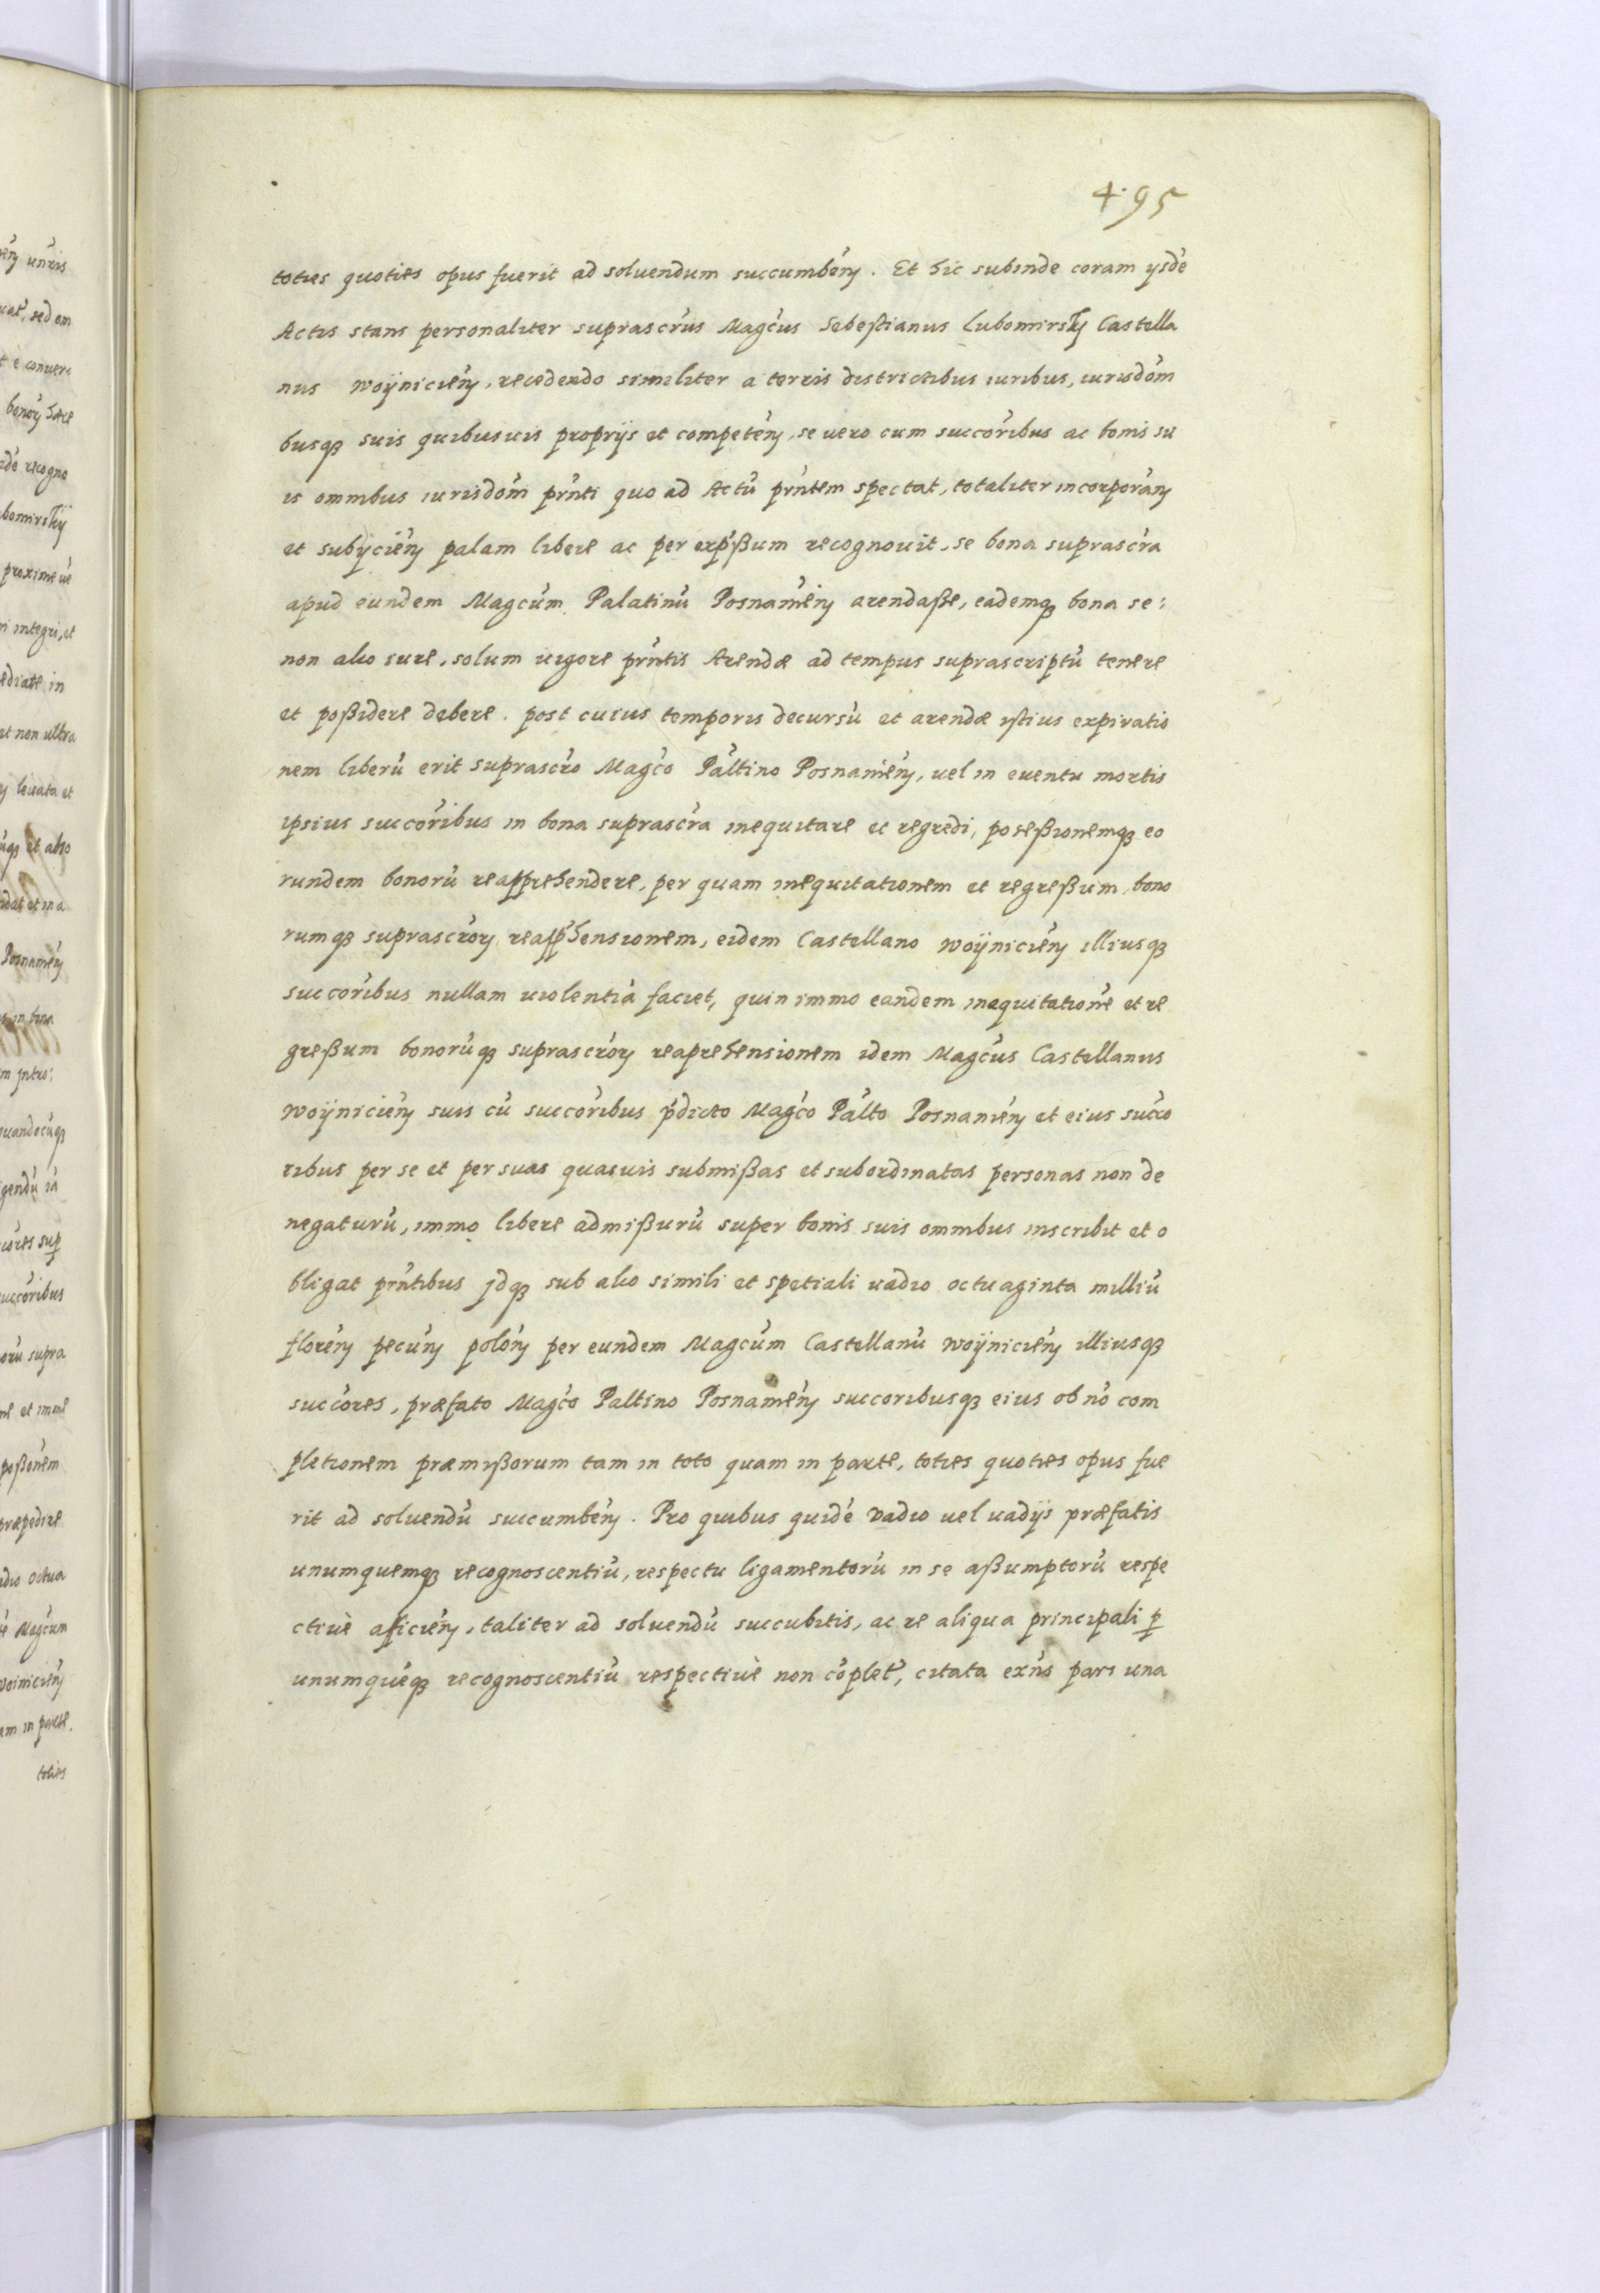 495
toties quoties opus fuerit ad soluendum succumbeń. Et hic subinde coram ysdē
Actis stans personaliter suprascrus Magcus Sebestianus Lubomirsky Castella
nus Woynicień, recedendo similiter a terris districtibus iuribus, iurisdom
busq suis quibusuis proprys et competeń, se uero cum succoribus ac bonis su
is omnibus iurisdom prnti quo ad Actū prntem spectat, totaliter incorporań
et subycień palam libere ac per expßum recognouit, se bona suprascra
apud eundem Magcum Palatinū Posnanień arendaße, eademq bona se:
non alio iure, solum uigore prntis Arendæ ad tempus suprascriptū tenere
et poßidere debere. post cuius temporis decursū et arendæ istius expiratio
nem liberū erit suprascro Magco Paltino Posnanień, uel in euentu mortis
ipsius succoribus in bona suprascra inequitare et regredi, poseßionemq eo
rundem bonorū reapprehendere, per quam inequitationem et regreßum bono
rumq suprascror reapphensionem, eidem Castellano Woynicień illiusq
succoribus nullam uiolentiā faciet, quin immo eandem inequitationē et re
greßum bonorūq suprascror reaprehensionem idem Magcus Castellanus
Woynicień suis cū succoribus pdicto Magco Palto Posnanień et eius succo
ribus per se et per suas quasuis submißas et subordinatas personas non de
negaturū, immo libere admißurū super bonis suis omnibus inscribit et o
bligat prntibus jdq sub alio simili et spetiali uadio octuaginta milliū
floreń pecuń poloń per eundem Magcum Castellanū Woynicień illiusq
succores, præfato Magco Paltino Posnanień succoribusq eius ob nō com
pletionem præmißorum tam in toto quam in parte, toties quoties opus fue
rit ad soluendū succumbeń. Pro quibus quidē vadio uel uadys præfatis
unumquemq recognoscentiū, respectu ligamentorū in se aßumptorū respe
ctiuè aficień, taliter ad soluendū succubitis, ac re aliqua principali p
unumquēq recognoscentiū respectiuè non cōplet, citata exns pars una